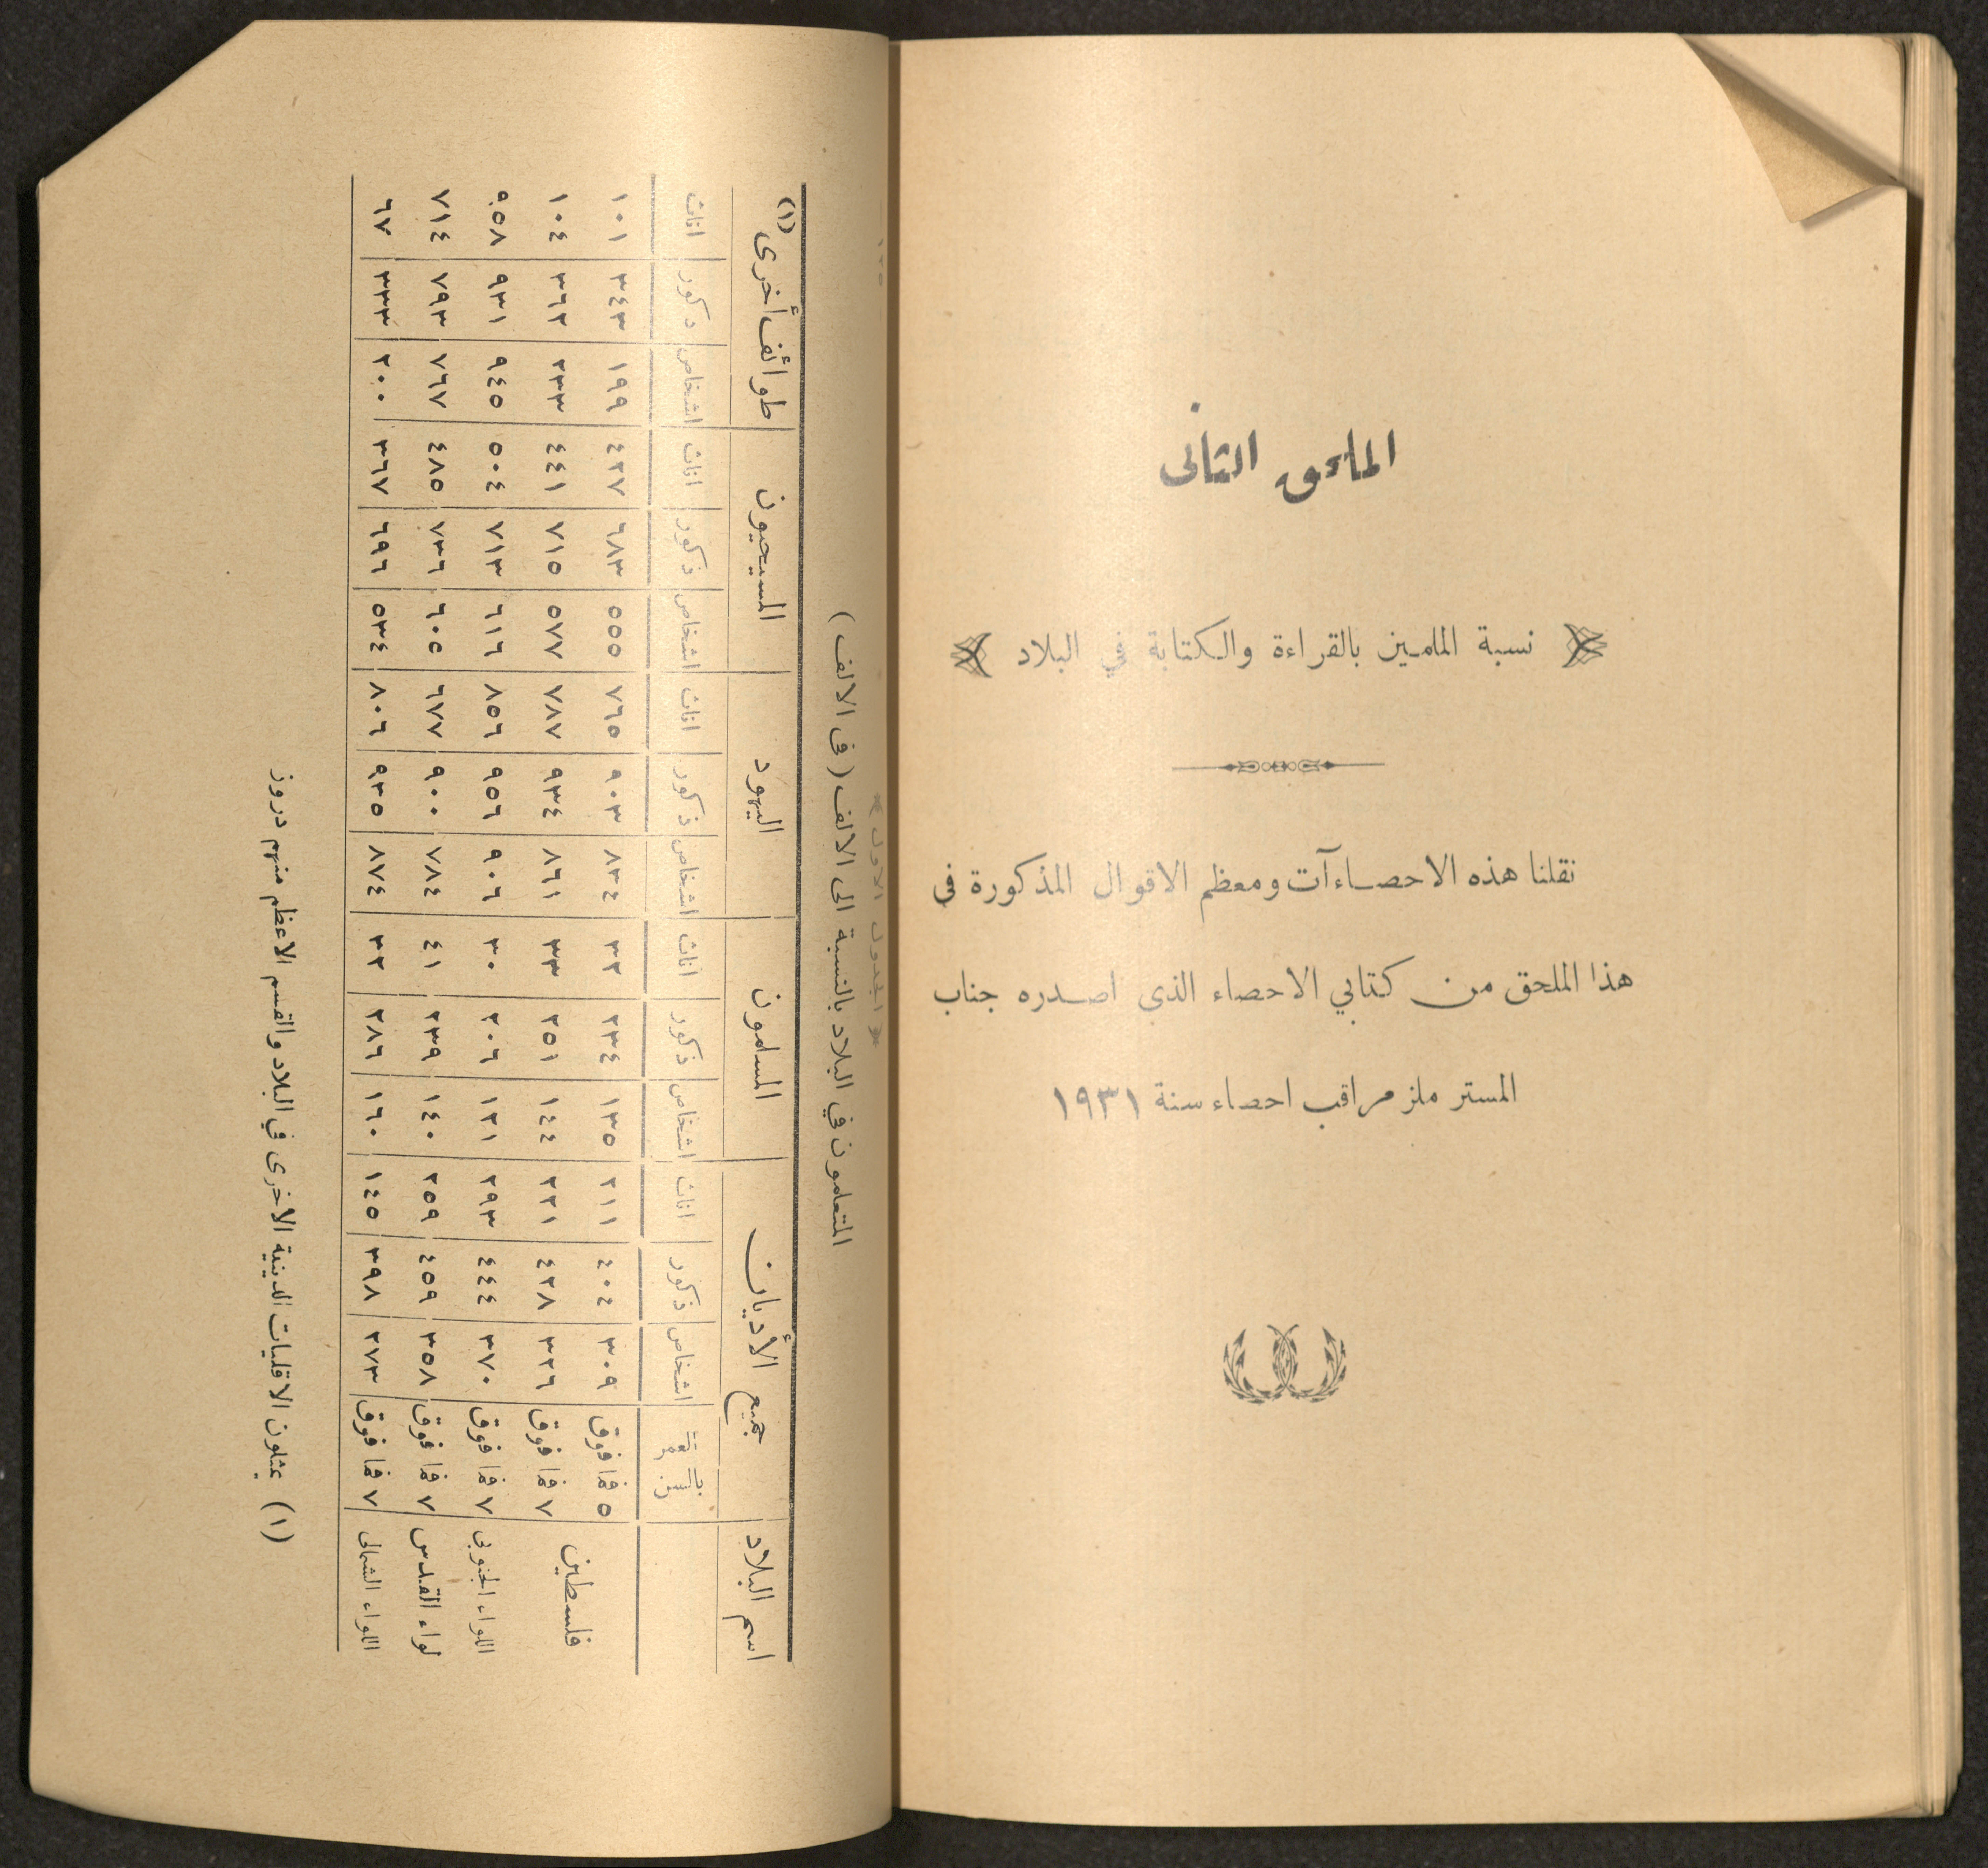 الملحق الثاني
نسبة الملمين بالقراءة والكتابة في البلاد
نقلنا هذه الاحصاءآت ومعظم الاقوال المذكورة في
هذا الملحق من كتابي الاحصاء الذي اصدره جناب
المستر ملز مراقب احصاء سنة ١٩٣١
﴿ الجدول الاول ﴾
المتعلمون في البلاد بالنسبة الى الالف ( في الالف )
اسم البلاد جميع الأديان المسلمون اليهود المسيحيون طوائف أخرى (١)
اشخاص ذكور اناث اشخاص ذكور اناث اشخاص ذكور اناث اشخاص ذكور اناث اشخاص ذكور اناث
فلسطين ٥ فما فوق ٣٠٩ ٤٠٤ ٢١١ ١٣٥ ٢٣٤ ٣٢ ٨٣٤ ٩٠٣ ٧٦٥ ٥٥٥ ٦٨٣ ٤٢٧ ١٩٩ ٣٤٣ ١٠١
٧ فما فوق ٣٢٦ ٤٢٨ ٢٢١ ١٤٤ ٢٥١ ٣٣ ٨٦١ ٩٣٤ ٧٨٧ ٥٧٧ ٧١٥ ٤٤١ ٢٣٣ ٣٦٣ ١٠٤
اللواء الجنوبي ٧ فما فوق ٣٧٠ ٤٤٤ ٢٩٣ ١٢١ ٢٠٦ ٣٠ ٩٠٦ ٩٥٦ ٨٥٦ ٦١٦ ٧١٣ ٥٠٤ ٩٤٥ ٩٣١ ٩٥٨
لواء القدس ٧ فما فوق ٣٥٨ ٤٥٩ ٢٥٩ ١٤٠ ٢٣٩ ٤١ ٧٨٤ ٩٠٠ ٦٧٧ ٦٠٥ ٧٢٦ ٤٨٥ ٧٦٧ ٧٩٣ ٧١٤
اللواء الشمالي ٧ فما فوق ٢٧٣ ٣٩٨ ١٤٥ ١٦٠ ٢٨٦ ٣٣ ٨٧٤ ٩٣٥ ٨٠٦ ٥٣٤ ٦٩٦ ٣٦٧ ٢٠٠ ٣٣٣ ٦٧
(١) يمثلون الاقليات الدينية الاخرى في البلاد والقسم الاعظم منهم دروز